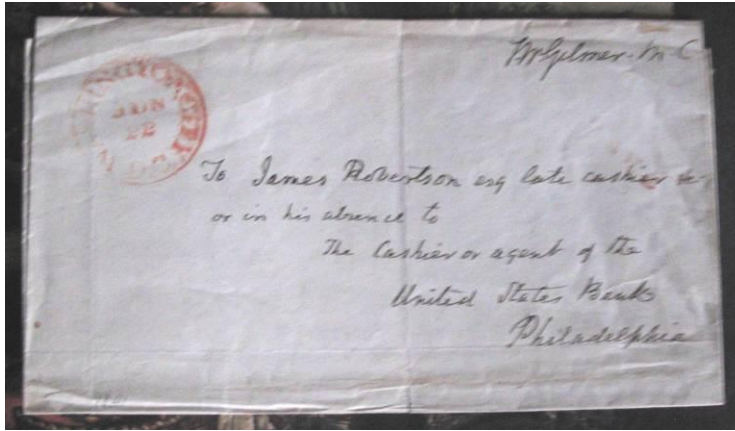 WmGilmer. M C
JUN
22
To James Robertson esq late cashier &c
or in his absence to
The Cashier or agent of the
United States Bank
Philadelphia